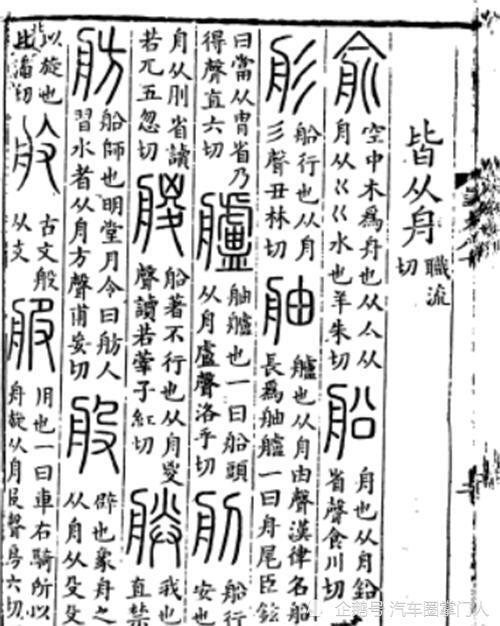 皆从舟
職流
切
俞
空中木為舟也从亼从
舟从巜巜水也羊朱切
船
舟也从舟鉛
省聲食川切
彤
船行也从舟
彡聲丑林切
舳
艫也从舟由聲漢律名船
長為舳艫一曰舟尾臣鉉
曰當从胄省乃
得聲直六切
艫
舳艫也一曰船頭
从舟盧聲洛乎切
䑣
船行
安也
舟从刖省讀
若兀五忽切
艐
船著不行也从舟㚇
聲讀若䔋子紅切
朕
我也
直禁
舫
船師也明堂月令曰舫人
習水者从舟方聲甫妄切
般
辟也象舟之
从舟从殳殳
以旋也
北潘切
古文般
从攴
服
用也一曰車右騎所以
舟旋从舟𠬝聲房六切
企鹅号 汽车圈掌门人